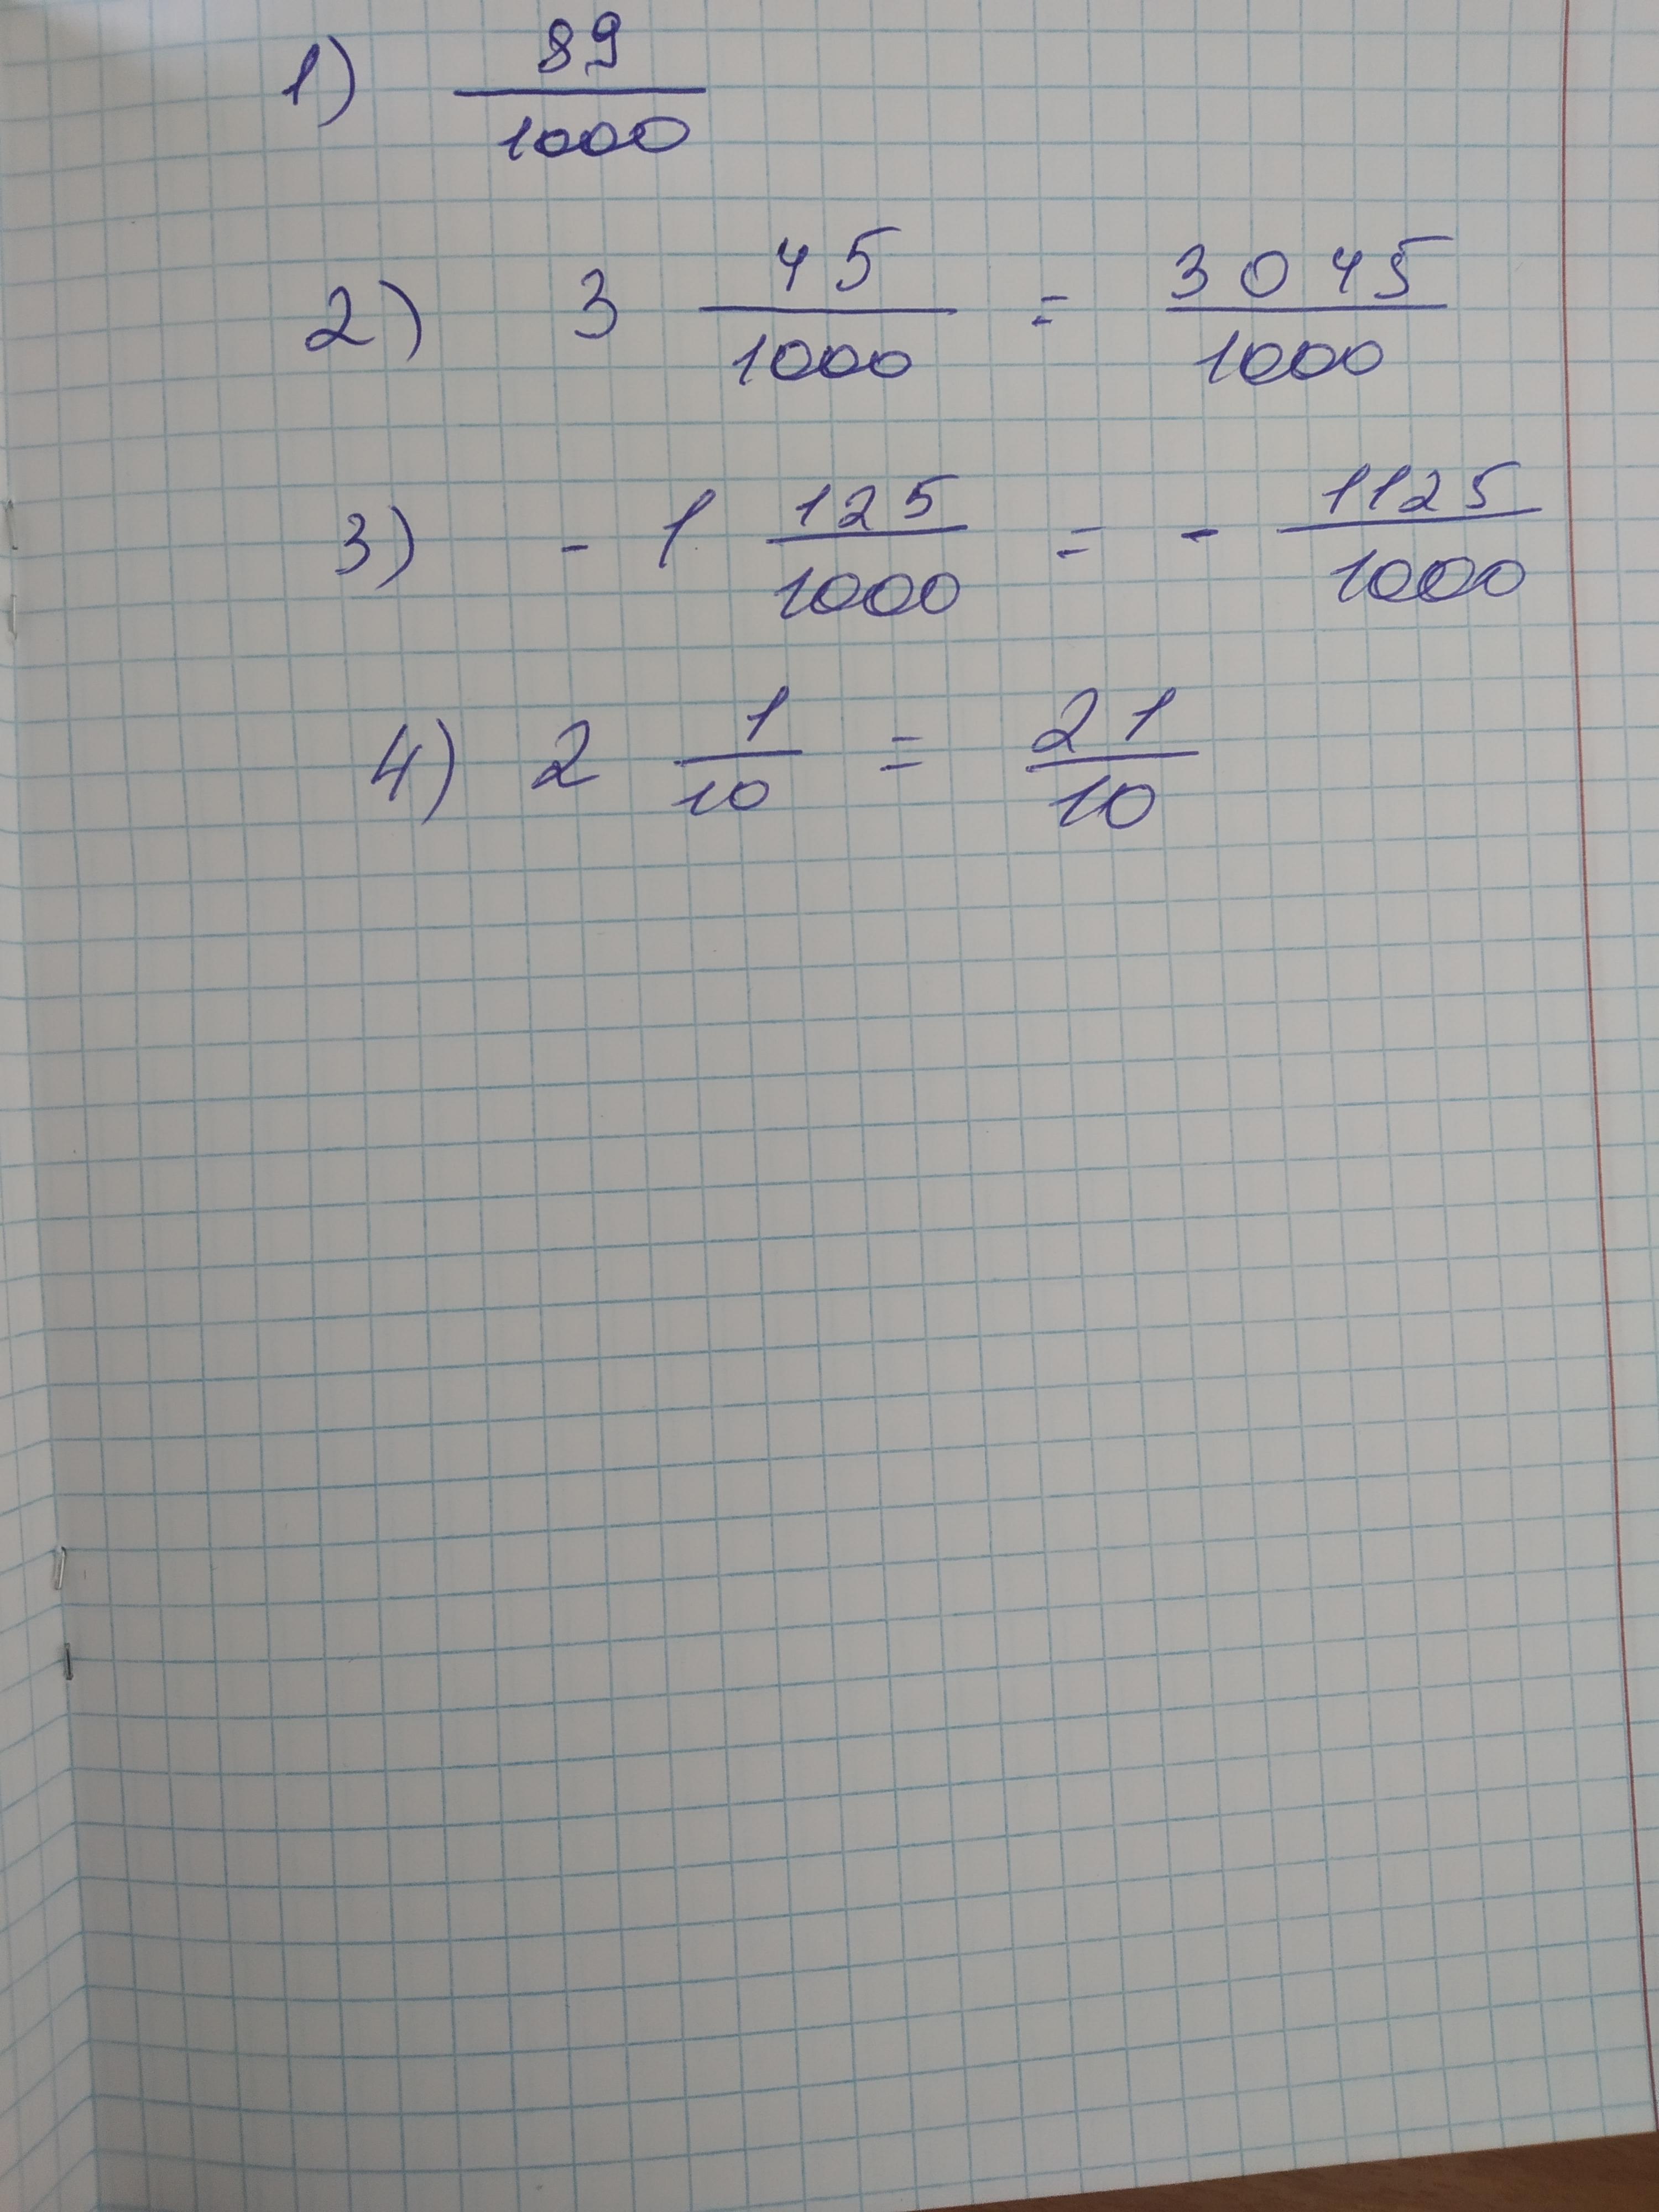 1) 89/1000
2) 3 45/1000 = 3045/1000
3) - 1 125/1000 = - 1125/1000
4) 2 1/10 = 21/10